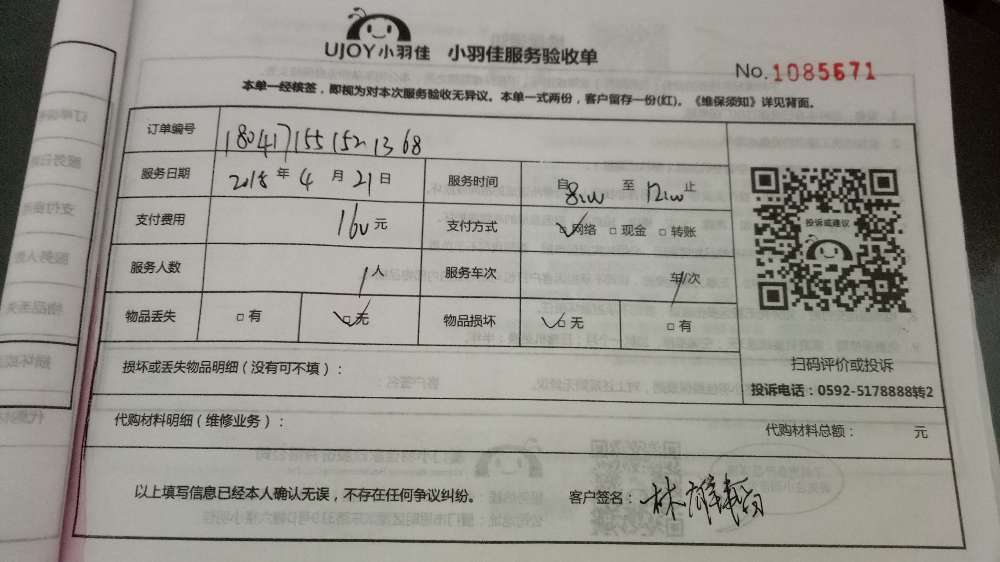 UJOY小羽佳 小羽佳服务验收单
No.1085671
本单一经核签，即视为对本次服务验收无异议。本单一式两份，客户留存一份(红)。《维保须知》详见背面。
订单编号 18041715515213 68
服务日期 2018 年 4 月 21 日 服务时间 自 8:00 至 12:00 止
支付费用 160 元 支付方式 □网络 □现金 □转账
服务人数 1 人 服务车次 车/次
物品丢失 □有 □无 物品损坏 □无 □有
投诉或建议
扫码评价或投诉
投诉电话：0592-5178888转2
损坏或丢失物品明细（没有可不填）：
代购材料明细（维修业务）：
代购材料总额： 元
以上填写信息已经本人确认无误，不存在任何争议纠纷。 客户签名：林